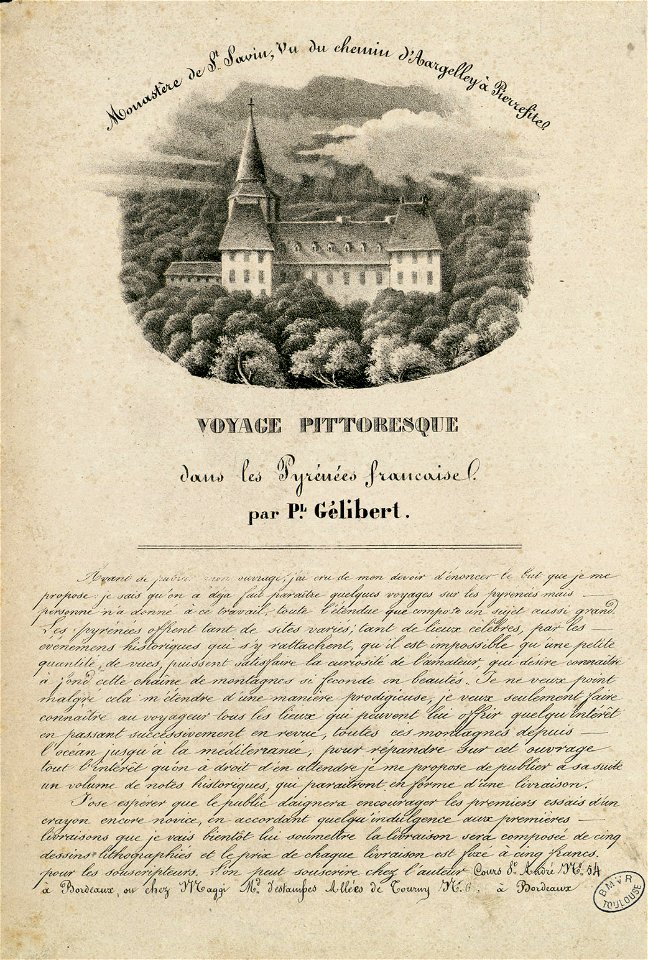 Monastère de St. Savin, Vu du chemin d'Aargelley à Pierrefites
VOYAGE PITTORESQUE
dans les Pyrénées francaises.
par Ph. Gélibert.
Avant de publier mon ouvrage, j'ai cru de mon devoir d'énoncer le but que je me
propose: je sais qu'on a déja fait paraitre quelques voyages sur les pyrenées mais
personne n'a donné à ce travail, toute l'étendue que comporte un sujet aussi grand.
Les pyrénées offrent tant de sites variés, tant de lieux célébres, par les
évenemens historiques qui s'y rattachent, qu'il est impossible qu'une petite
quantité, de vues, puissent satisfaire la curiosité de l'amateur, qui desire connaitre
à fond, cette chaine de montagnes si féconde en beautés. Je ne veux point
malgré cela m'étendre d'une manière prodigieuse, je veux seulement faire
connaitre au voyageur tous les lieux qui peuvent lui offrir quelqu'intérêt
en passant successivement en revue, toutes ces montagnes depuis
l'océan jusqu'à la mediterranée, pour repandre sur cet ouvrage
tout l'intérêt qu'on à droit d'en attendre je me propose de publier a sa suite
un volume de notes historiques, qui paraitront en forme d'une livraison.
J'ose espérer que le public daignera encourager les premiers essais d'un
crayon encore novice, en accordant quelqu'indulgence aux premières
livraisons que je vais bientôt lui soumettre la livraison sera composée de cinq
dessins lithographiés et le prix de chaque livraison est fixé à cinq francs.
pour les souscripteurs. l'on peut souscrire chez l'auteur Cours St. André No. 54
à Bordeaux, ou chez Maggi Md. d'estampes Allées de Tourny N. 6. à Bordeaux
B M V R
TOULOUSE